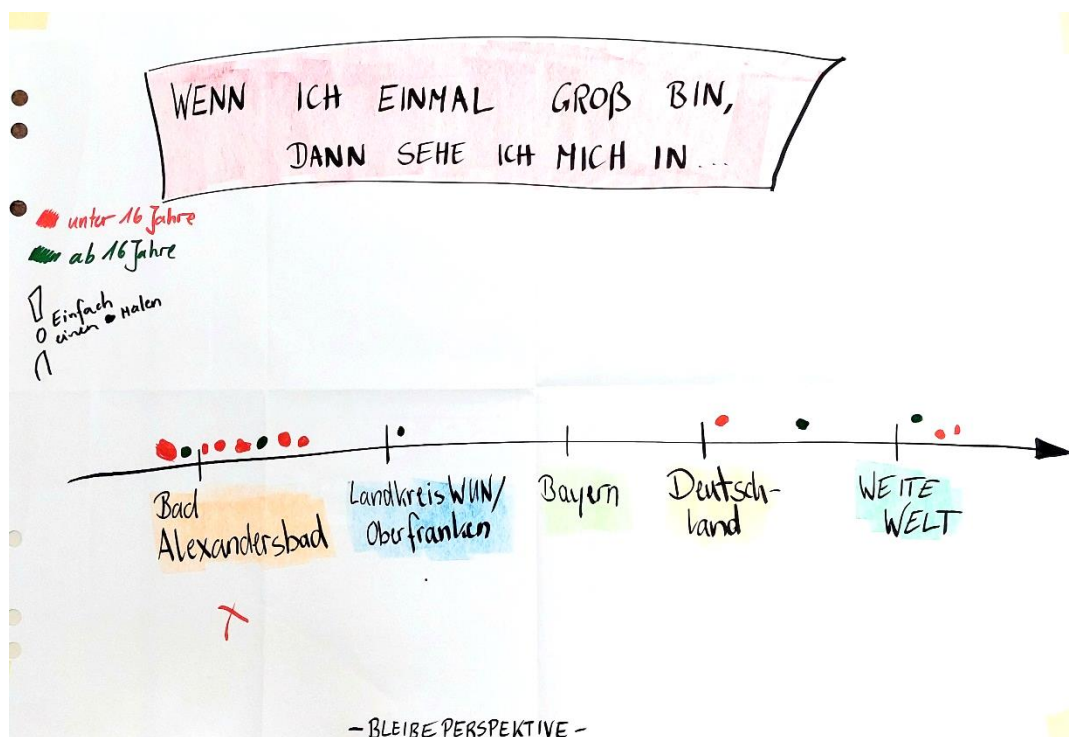 WENN ICH EINMAL GROß BIN,
DANN SEHE ICH MICH IN...
unter 16 Jahre
ab 16 Jahre
Einfach
einen Malen
Bad
Alexandersbad
Landkreis WUN/
Oberfranken
Bayern
Deutsch-
land
WEITE
WELT
- BLEIBEPERSPEKTIVE -